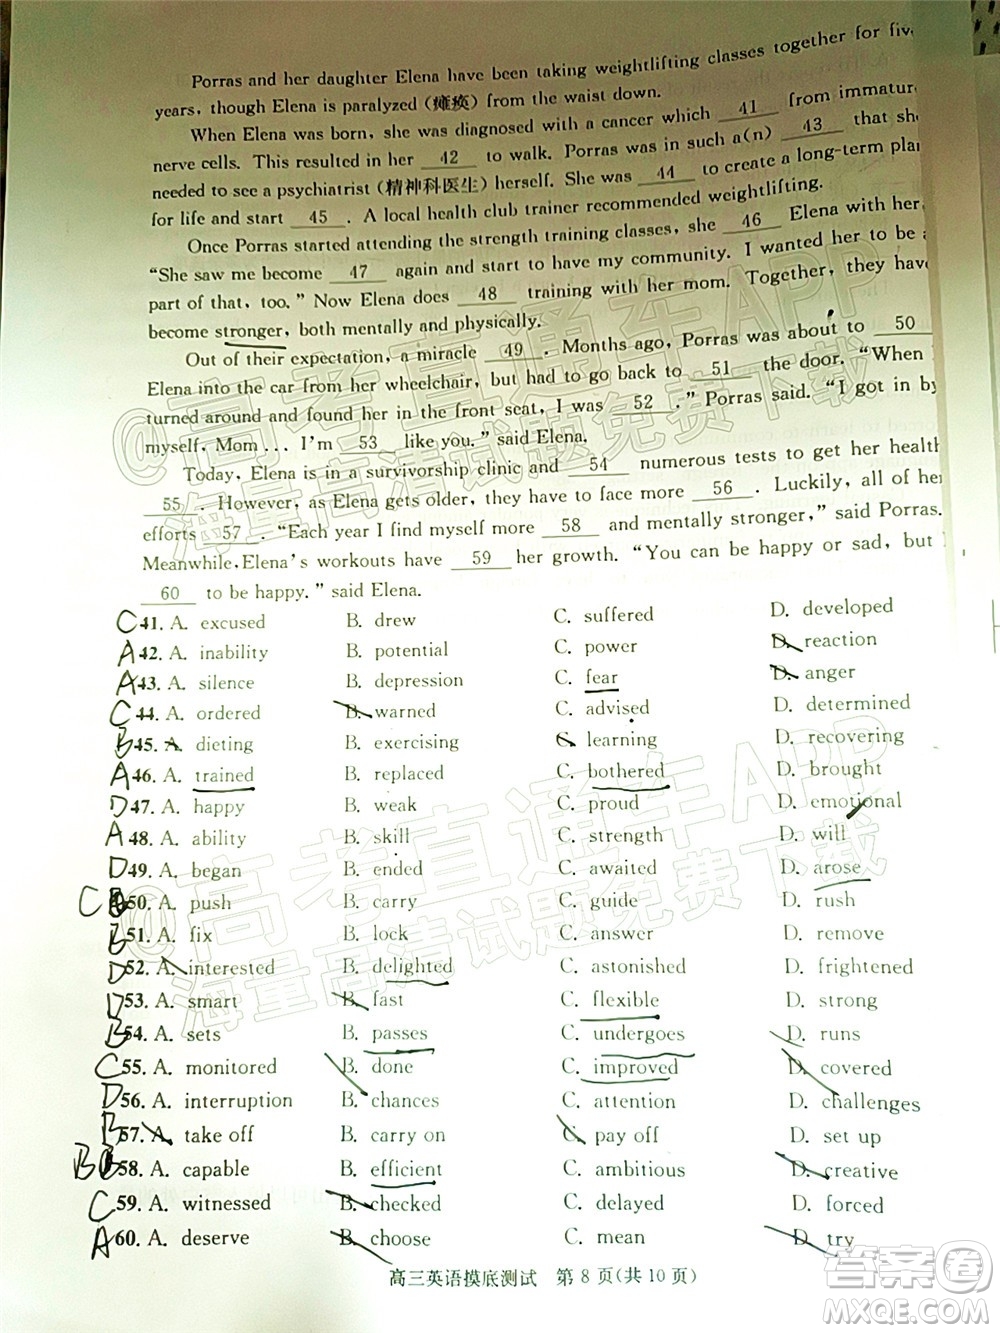 Porras and her daughter Elena have been taking weightlifting classes together for five
years, though Elena is paralyzed (瘫痪) from the waist down.
When Elena was born, she was diagnosed with a cancer which 41 from immature
nerve cells. This resulted in her 42 to walk. Porras was in such a(n) 43 that she
needed to see a psychiatrist (精神科医生) herself. She was 44 to create a long-term plan
for life and start 45 . A local health club trainer recommended weightlifting.
Once Porras started attending the strength training classes, she 46 Elena with her.
“She saw me become 47 again and start to have my community. I wanted her to be a
part of that, too.” Now Elena does 48 training with her mom. Together, they have
become stronger, both mentally and physically.
Out of their expectation, a miracle 49 . Months ago, Porras was about to 50
Elena into the car from her wheelchair, but had to go back to 51 the door. “When I
turned around and found her in the front seat, I was 52 .” Porras said. “I got in by
myself, Mom ... I'm 53 like you.” said Elena.
Today, Elena is in a survivorship clinic and 54 numerous tests to get her health
55 . However, as Elena gets older, they have to face more 56 . Luckily, all of her
efforts 57 . “Each year I find myself more 58 and mentally stronger,” said Porras.
Meanwhile, Elena's workouts have 59 her growth. “You can be happy or sad, but I
60 to be happy.” said Elena.
C 41. A. excused B. drew C. suffered D. developed
A 42. A. inability B. potential C. power D. reaction
A 43. A. silence B. depression C. fear D. anger
C 44. A. ordered B. warned C. advised D. determined
B 45. A. dieting B. exercising C. learning D. recovering
A 46. A. trained B. replaced C. bothered D. brought
D 47. A. happy B. weak C. proud D. emotional
A 48. A. ability B. skill C. strength D. will
D 49. A. began B. ended C. awaited D. arose
C 50. A. push B. carry C. guide D. rush
B 51. A. fix B. lock C. answer D. remove
D 52. A. interested B. delighted C. astonished D. frightened
D 53. A. smart B. fast C. flexible D. strong
B 54. A. sets B. passes C. undergoes D. runs
C 55. A. monitored B. done C. improved D. covered
D 56. A. interruption B. chances C. attention D. challenges
B 57. A. take off B. carry on C. pay off D. set up
B 58. A. capable B. efficient C. ambitious D. creative
C 59. A. witnessed B. checked C. delayed D. forced
A 60. A. deserve B. choose C. mean D. try
高三英语摸底测试 第 8 页(共 10 页)
@高考直通车APP
海量高清试题免费下载
@高考直通车APP
海量高清试题免费下载
答案圈
MXQE.COM